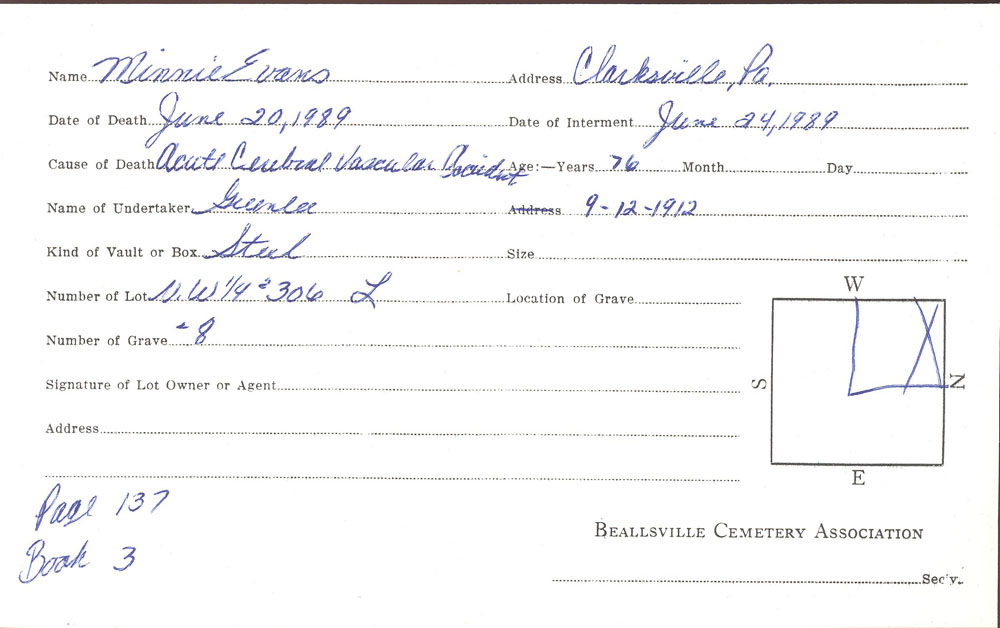 Name Minnie Evans Address Clarksville, Pa.
Date of Death June 20, 1989 Date of Interment June 24, 1989
Cause of Death Acute Cerebral Vascular Accident Age:—Years 76 Month Day
Name of Undertaker Greenlee Address 9-12-1912
Kind of Vault or Box Steel Size
Number of Lot N.W 1/4 # 306 L Location of Grave
Number of Grave # 8
Signature of Lot Owner or Agent
Address
W
S
N
E
Page 137
Book 3
BEALLSVILLE CEMETERY ASSOCIATION
Sec'y.